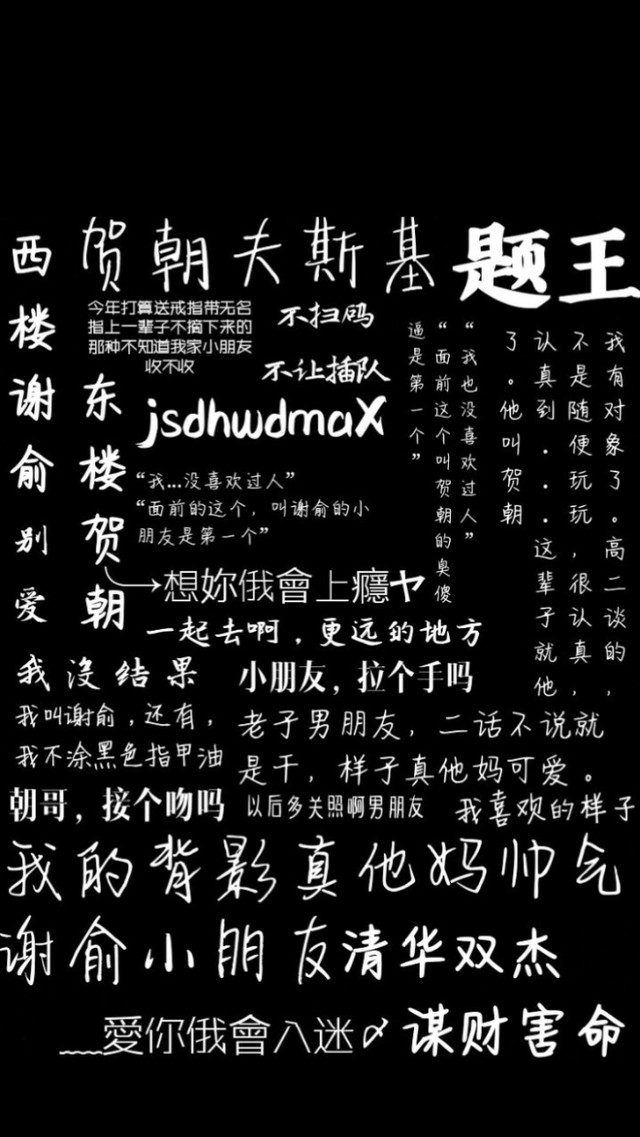 西楼谢俞别爱
贺朝夫斯基
题王
今年打算送戒指带无名
指上一辈子不摘下来的
那种不知道我家小朋友
收不收
不扫码
不让插队
东楼贺朝
jsdhwdmaX
“我...没喜欢过人”
“面前的这个，叫谢俞的小
朋友是第一个”
“我也没喜欢过人”
“面前这个叫贺朝的臭傻
逼是第一个”
我有对象了。高二谈的，
不是随便玩玩，很认真，
认真到...这辈子就他
了。他叫贺朝
想妳俄會上癮ヤ
一起去啊，更远的地方
我没结果
小朋友，拉个手吗
我叫谢俞，还有，
我不涂黑色指甲油
老子男朋友，二话不说就
是干，样子真他妈可爱。
朝哥，接个吻吗
以后多关照啊男朋友
我喜欢的样子
我的背影真他妈帅气
谢俞小朋友
清华双杰
﹏愛你俄會入迷〆
谋财害命